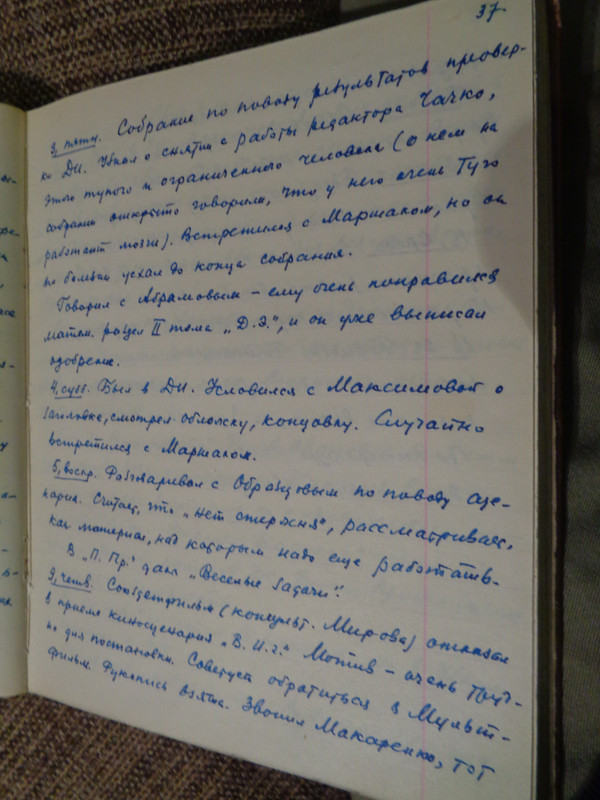 37
3, пятн. Собрание по поводу результатов провер-
ки ДИ. Узнал о снятии с работы редактора Чачко,
этого тупого и ограниченного человека (о нем на
собрании открыто говорили, что у него очень туго
работают мозги). Встретился с Маршаком, но он
по болезни уехал до конца собрания.
Говорил с Абрамовым – ему очень понравился
матем. раздел II тома „Д.Э.", и он уже выписал
одобрение.
4, субб. Был в ДИ. Условился с Максимовой о
заголовке, смотрел обложку, концовку. Случайно
встретился с Маршаком.
5, воскр. Разговаривал с Образцовым по поводу сце-
нария. Считает, что „нет стержня", рассматривает,
как материал, над которым надо еще работать.
В „П. Пр." дал „Веселые задачи".
9, четв. Союздетфильм (консульт. Мирова) отказал
в приеме киносценария „В.И.г." Мотив – очень труд-
но для постановки. Советует обратиться в Мульт-
фильм. Рукопись взята. Звонил Макаренко, тот